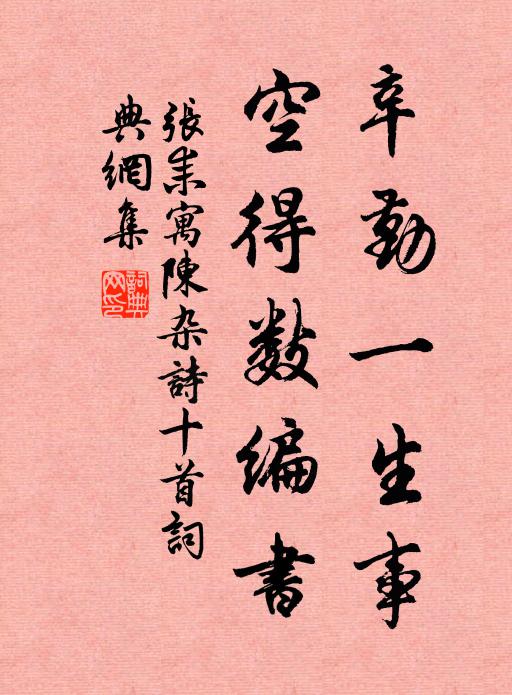 辛勤一生事
空得数编書
張耒寓陳杂詩十首詞
典網集
詞典
网印